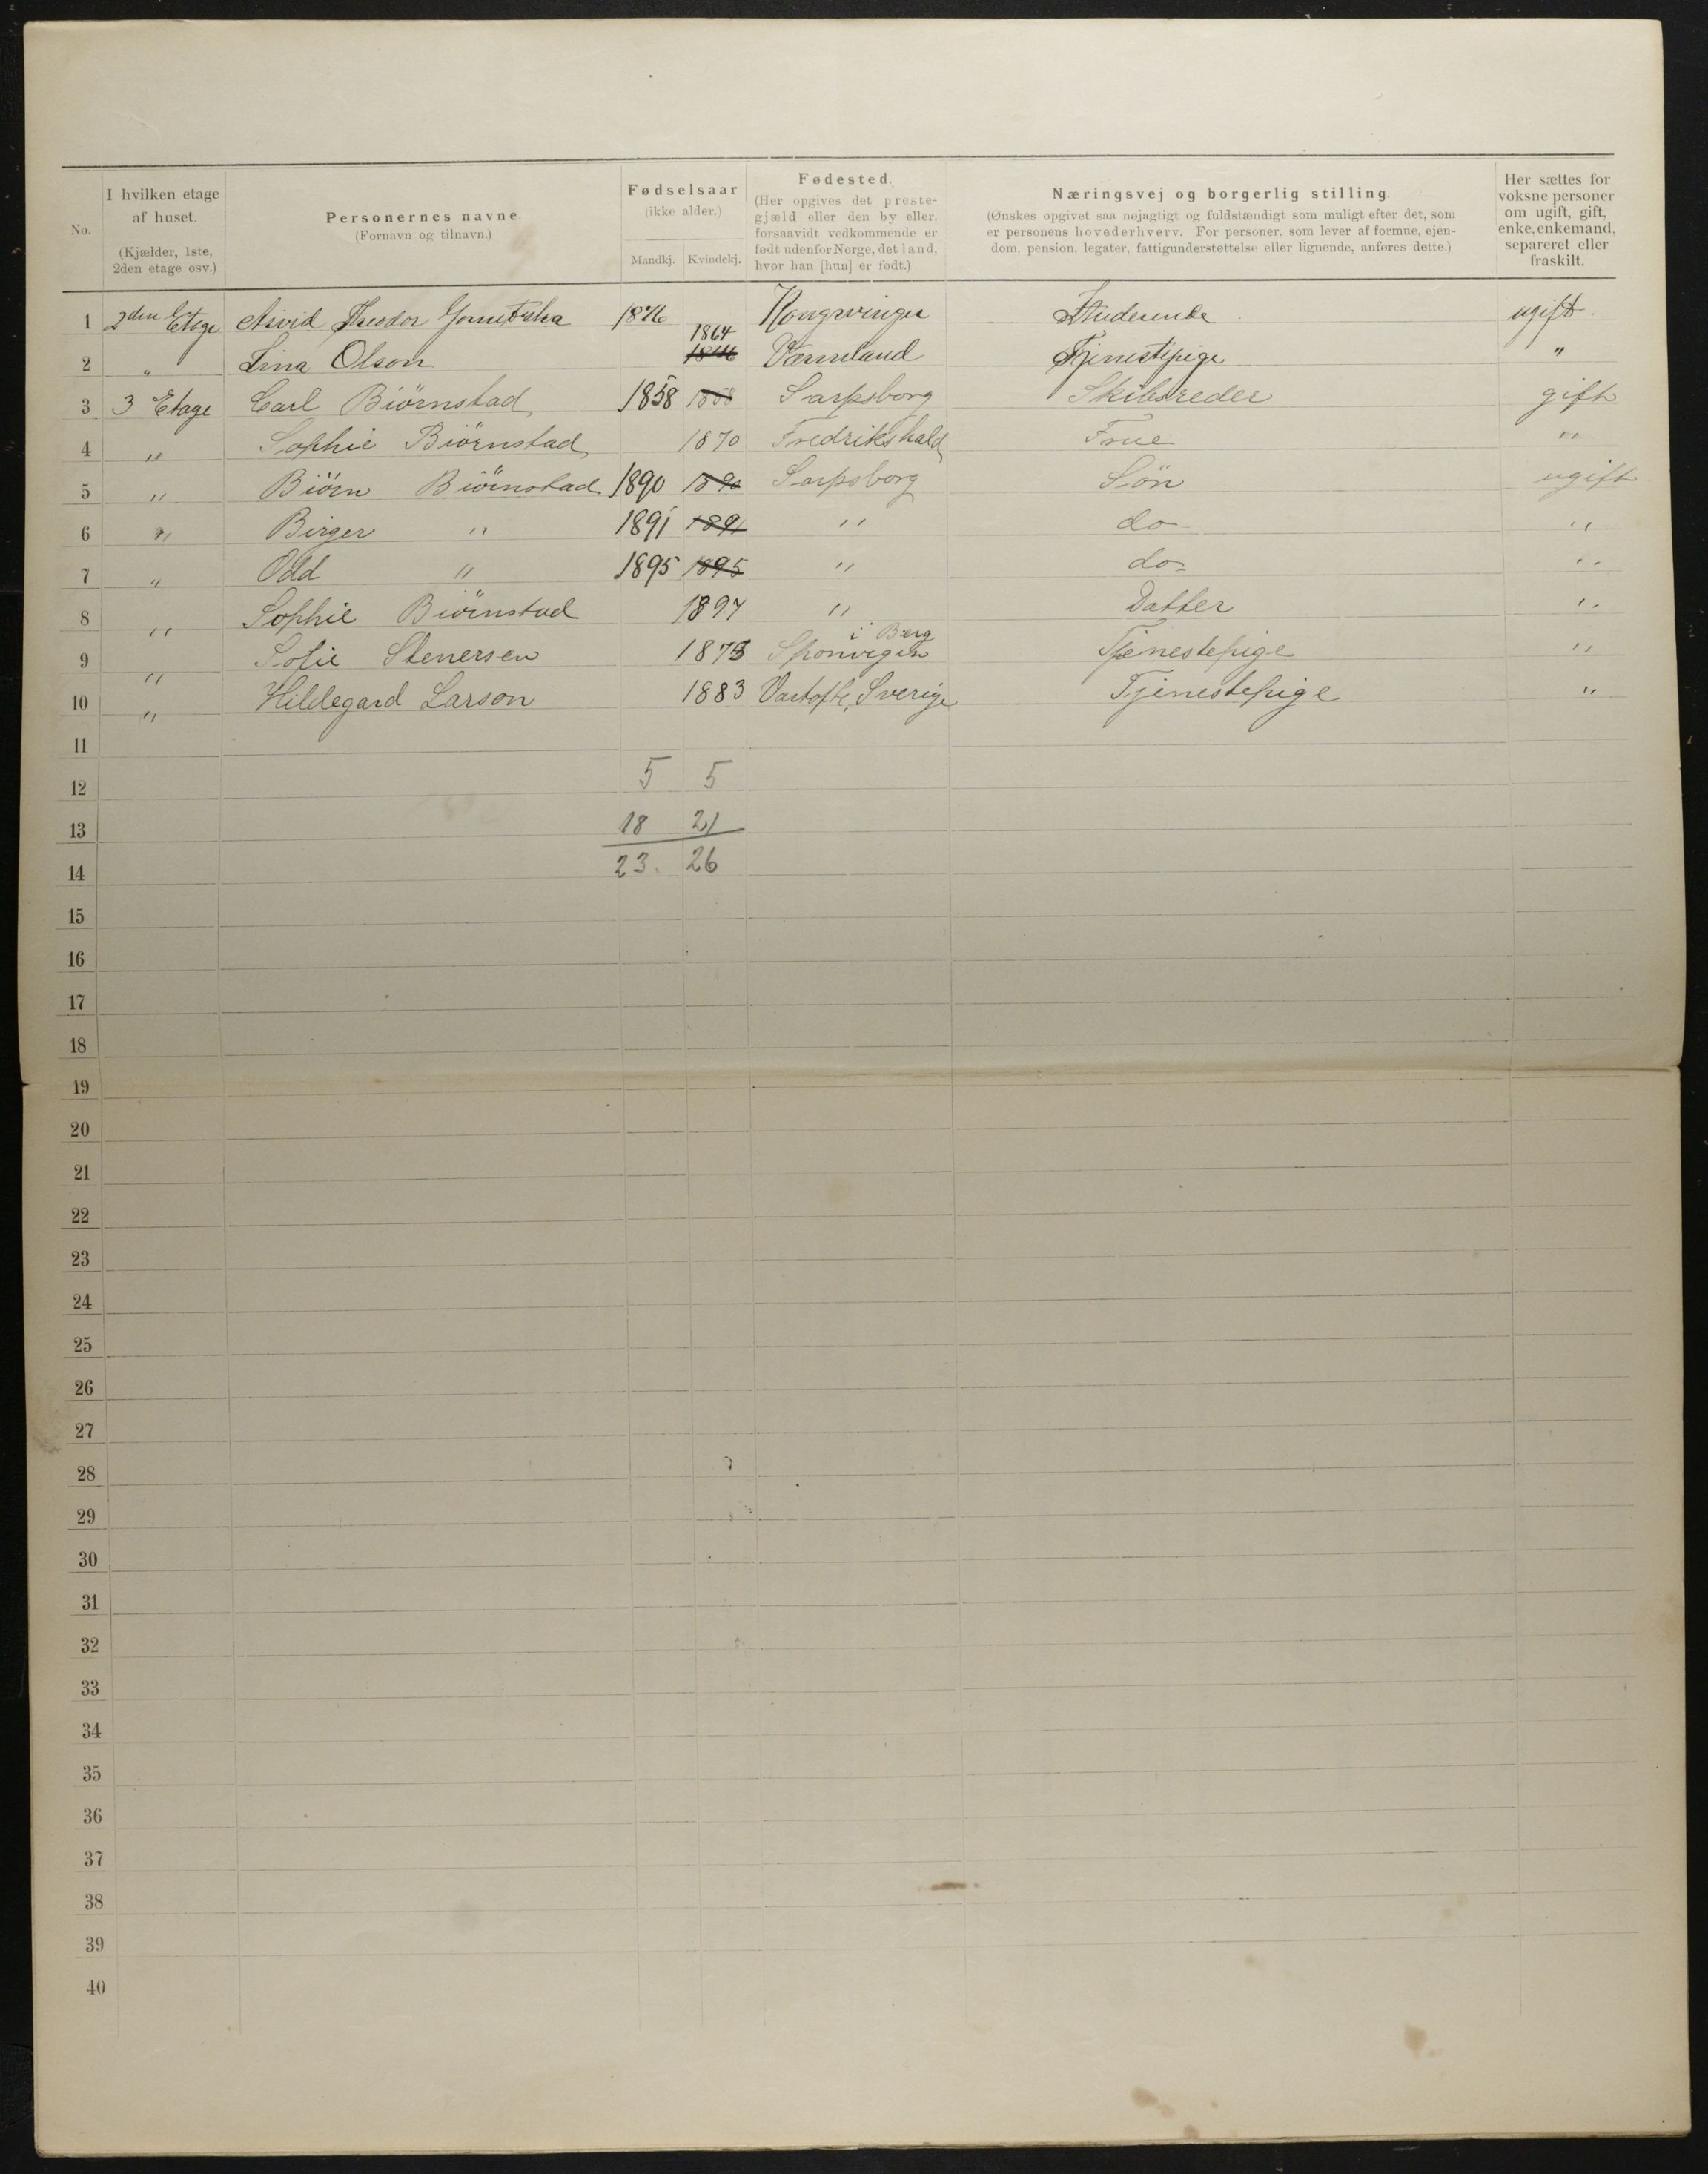 No.
I hvilken etage af huset. (Kjælder, 1ste, 2den etage osv.)
Personernes navne. (Fornavn og tilnavn.)
Fødselsaar (ikke alder.) Mandkj. Kvindekj.
Fødested. (Her opgives det prestegjæld eller den by eller, forsaavidt vedkommende er født udenfor Norge, det land, hvor han [hun] er født.)
Næringsvej og borgerlig stilling. (Ønskes opgivet saa nøjagtigt og fuldstændigt som muligt efter det, som er personens hovederhverv. For personer, som lever af formue, ejendom, pension, legater, fattigunderstøttelse eller lignende, anføres dette.)
Her sættes for voksne personer om ugift, gift, enke, enkemand, separeret eller fraskilt.
1 2den Etage Arvid Theodor 1876 Kongsvinger Studerende ugift
2 " Lina Olson 1864 Värmland Tjenestepige "
3 3 Etage Carl Biörnstad 1858 1858 Sarpsborg Skibsreder gift
4 " Sophie Biörnstad 1870 Fredrikshald Frue "
5 " Biörn Biörnstad 1890 1890 Sarpsborg Sön ugift
6 " Birger " 1891 1891 " do "
7 " Odd " 1895 1895 " do "
8 " Sophie Biörnstad 1897 " Datter "
9 " Sofie Stenersen 1873 Sponvigen i Berg Tjenestepige "
10 " Hildegard Larson 1883 Vartofte, Sverige Tjenestepige "
11
12 5 5
13 18 21
14 23. 26
15
16
17
18
19
20
21
22
23
24
25
26
27
28
29
30
31
32
33
34
35
36
37
38
39
40